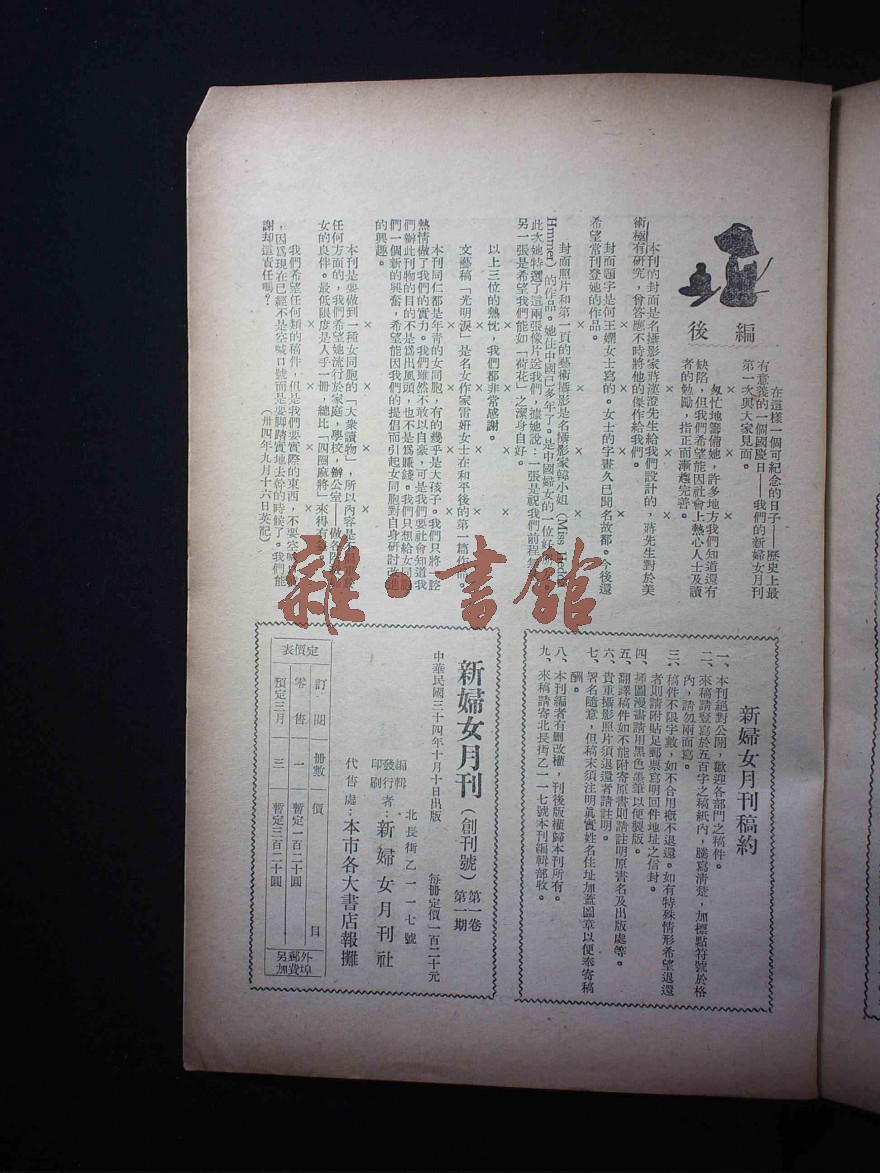 編後
在這樣一個可紀念的日子——歷史上最
有意義的一個國慶日——我們的新婦女月刊
第一次與大家見面。
匆忙地籌備她，許多地方我們知道還有
缺陷，但我們希望能因社會上熱心人士及讀
者的勉勵，指正而漸趨完善。
本刊的封面是名攝影家蔣漢澄先生給我們設計的，蔣先生對於美
術極有研究，曾答應不時將他的傑作給我們。
× × × ×
封面題字是何王嫻女士寫的。女士的字畫久已聞名故都。今後還
希望常刊登她的作品。
× × × ×
封面照片和第一頁的藝術攝影是名攝影家
(Miss
Hmmer)的作品。她住中國已多年了。是中國婦女的一位好
此次她特選了這兩張像片送我們，據她說：一張是祝我們前程
另一張是希望我們能如「荷花」之潔身自好。
× × × ×
以上三位的熱忱，我們都非常感謝。
× × × ×
文藝稿「光明淚」是名女作家雷妍女士在和平後的第一篇
× × × ×
本刊同仁都是年青的女同胞，有的幾乎是大孩子。我們只將一腔
熱情做了我們的實力。我們雖然不敢以自豪，可是我們要社會知道我
們辦此刊物的目的不是爲出風頭，也不是爲賺錢。我們只想給女同胞
們一個新的興奮，希望能因我們的提倡而引起女同胞對自身研討改進
的興趣。
× × × ×
本刊是要做到一種女同胞的「大衆讀物」，所以內容是
任何方面的，我們希望她流行於家庭，學校，辦公室——做各
女的良伴。最低限度是人手一冊，總比「四圈麻將」來得有
× × × ×
我們希望任何類的稿件，但是我們要實際的東西，不要空
，因爲現在已經不是空喊口號而是要脚踏實地去幹的時候了。我們能
謝却這責任嗎？
（卅四年九月十六日英記）
新婦女月刊稿約
一、本刊絕對公開，歡迎各部門之稿件。
二、來稿請豎寫於五百字之稿紙內，騰寫清楚，加標點符號於格
內，請勿兩面寫。
三、稿件不限字數，如不合用概不退還。如有特殊情形希望退還
者則請附貼足郵票寫明回件地址之信封。
四、插圖漫畫請用黑色墨筆以便製版。
五、翻譯稿件如不能附寄原書則請註明原書名及出版處等。
六、貴重攝影照片須退還者請註明。
七、署名隨意，但稿末須注明眞實姓名住址加蓋圖章以便奉寄稿
酬。
八、本刊編者有刪改權，刊後版權歸本刊所有。
九、來稿請寄北長街乙一一七號本刊編輯部收。
新婦女月刊（創刊號）第一卷
第一期
中華民國三十四年十月十日出版 每冊定價一百二十元
北長街乙一一七號
編輯
發行者：新婦女月刊社
印刷
代售處：本市各大書店報攤
定價表
訂閱 冊數 價目
零售 一 暫定一百二十圓
預定三月 三 暫定三百二十圓
外埠郵費另加
雜·書館